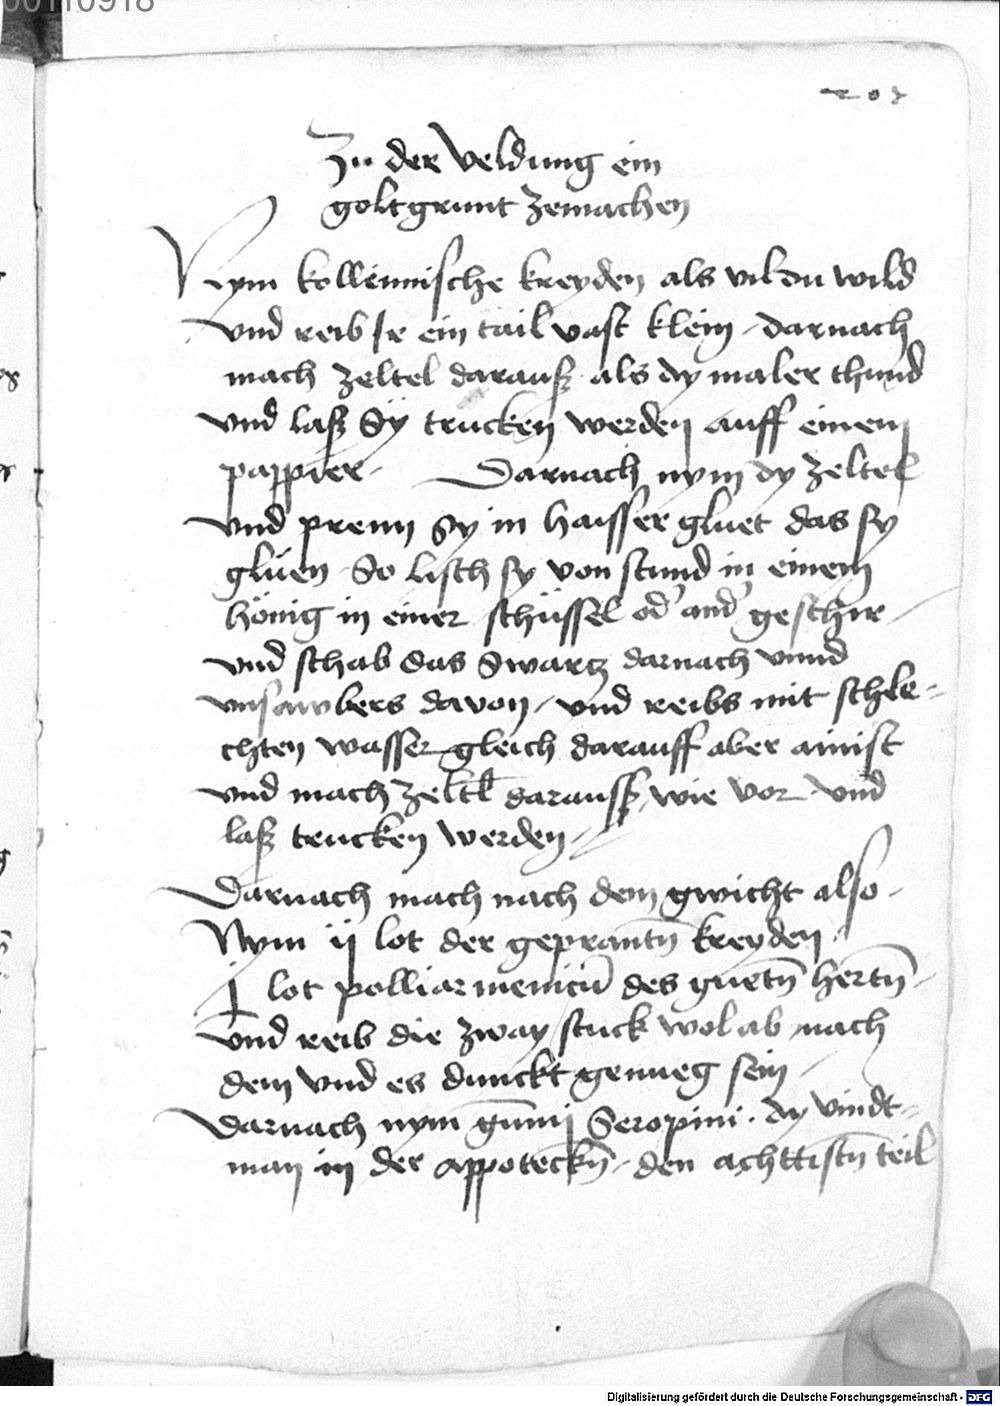 00110918
207
Zu der veldung ein
goltgrunt zemachen
Nym kollennische kreyden als vil du wild
vnd reib ir ein tail vast klein / darnach
mach zeltel darauß als dy maler thund
vnd laß Sÿ trucken werden auff einem
pappier / Darnach nym dy zeltel
vnd prenn Sy in haisser gluet das sy
glüen So lisch sy von stund in einem
hönig in einer schüssel od' and' geschir /
vnd schab das Swartz darnach vnnd
vnsawbers davon / vnd reibs mit schle=
chten wasser gleich darauff aber ainist
vnd mach zeltl darauß wie vor vnd
laß trucken werden /
Darnach mach nach dem gwicht also /
Nym ij lot der geprantn̄ kreyden /
j lot polliarmenicū des guetn̄ hertn̄ /
vnd reib die zway stuck wol ab nach
dem vnd es dunckt genueg sein /
Darnach nym gūmij Seropini. dy vindt=
man in der appoteckn̄ / den achttistn̄ teil
Digitalisierung gefördert durch die Deutsche Forschungsgemeinschaft - DFG